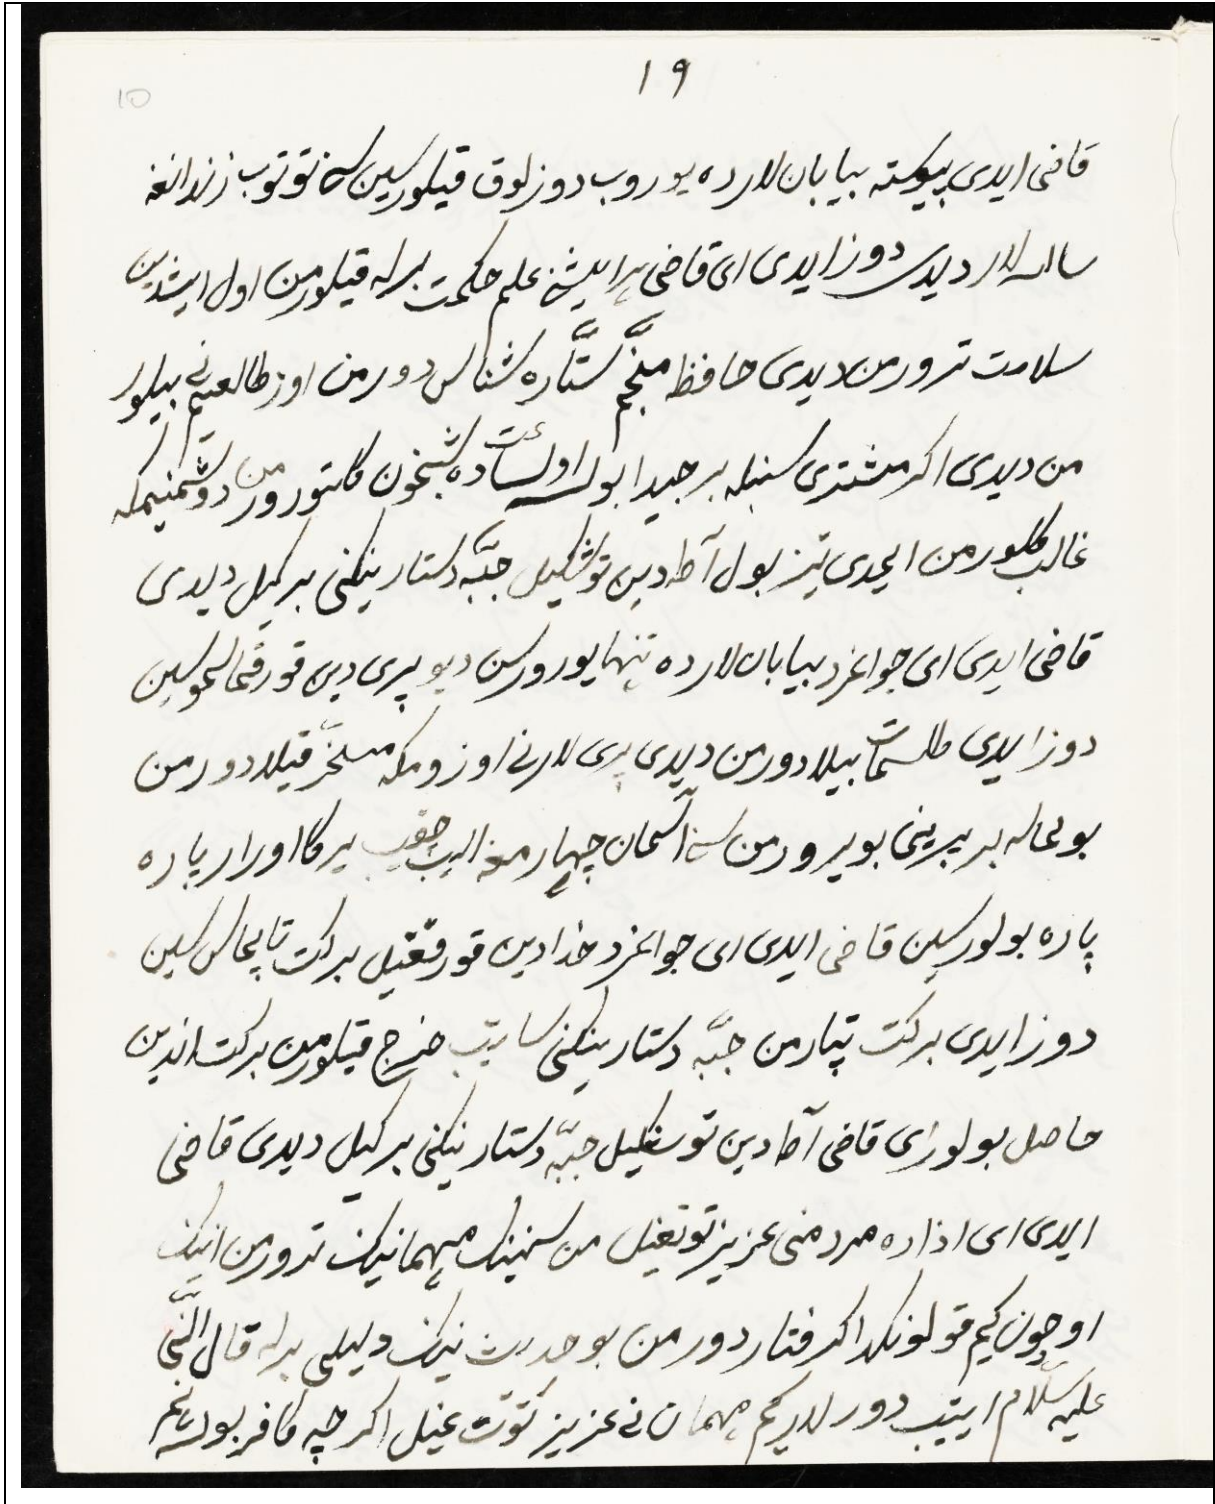 ١٩
10
قاضی ایدی پیوسته بیابان لارده یوروب دوزلوق قیلورسین سنی توتوب زندانغه
سالسه لار دیدی دوز ایدی ای قاضی هر ایشنی علم حکمت برله قیلورمن اول ایشدین
سلامت تورورمن دیدی حافظ منجّم ستّاره شناس دورمن اوز طالعیم نی بیلور
من دیدی اکر مشتری سنبله برجیدا بولسه اول ساعت ده شبخون کلتورورمن دوشمنیمکه
غالب کلورمن ایمدی تیز بول آطدین توشکیل جبّه دستارینکنی برکیل دیدی
قاضی ایدی ای جوانمرد بیابان لارده تنها یورورسن دیو پری دین قورقماسموسین
دوز ایدی طلسمات بیلادورمن دیدی پری لارنی اوزومکه مسخّر قیلادورمن
بولماسه بر بیرینی بویورورمن سنی آسمان چهارمغه الیب چقیب یرکا اورار پاره
پاره بولورسین قاضی ایدی ای جوانمرد خدادین قورقغیل برکت تاپماس سین
دوز ایدی برکت تپارمن جبّه دستارینکنی ساتیب خرج قیلورمن برکت اندین
حاصل بولور ای قاضی آطدین توشکیل جبّه دستارینکنی برکیل دیدی قاضی
ایدی ای ازاده مرد منی عزیز توتغیل من سنینک مهمانینک تورورمن انینک
اوچون کیم قولونکدا کرفتار دورمن بو حدیث نینک دلیلی برله قال النّبی
علیه السّلام ایتیب دورلار کیم مهمان نی عزیز توتغیل اکرچه کافر بولسه هم